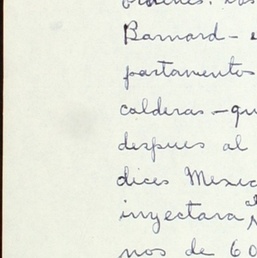 ordenes. Los
Barnard -
partamentos
calderas - qu
despues al
dices Mexic
inyectara
nos de 60